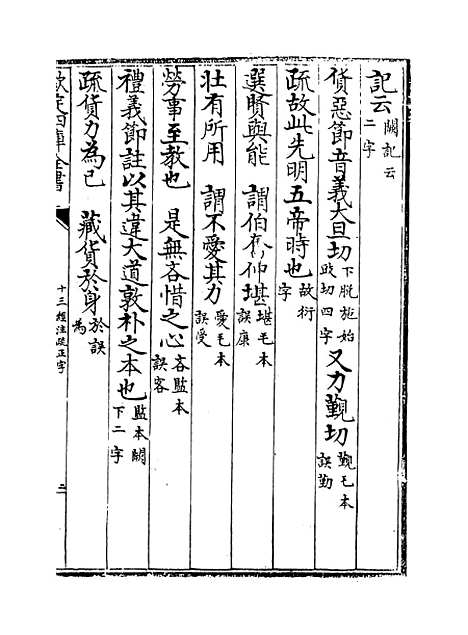 記云闕記云二字
貨惡節音義大旦切下脱施始䟱切四字又力覲切覲毛本誤勤
疏故此先明五帝時也故衍字
選賢與能　謂伯夷仲堪堪毛本誤康
壯有所用　謂不愛其力愛毛本誤受
勞事至教也　是無吝惜之心吝監本誤客
禮義節註以其違大道敦朴之本也監本闕下二字
疏貨力為已　藏貨於身於誤為
欽定四庫全書
十三經注疏正字
二